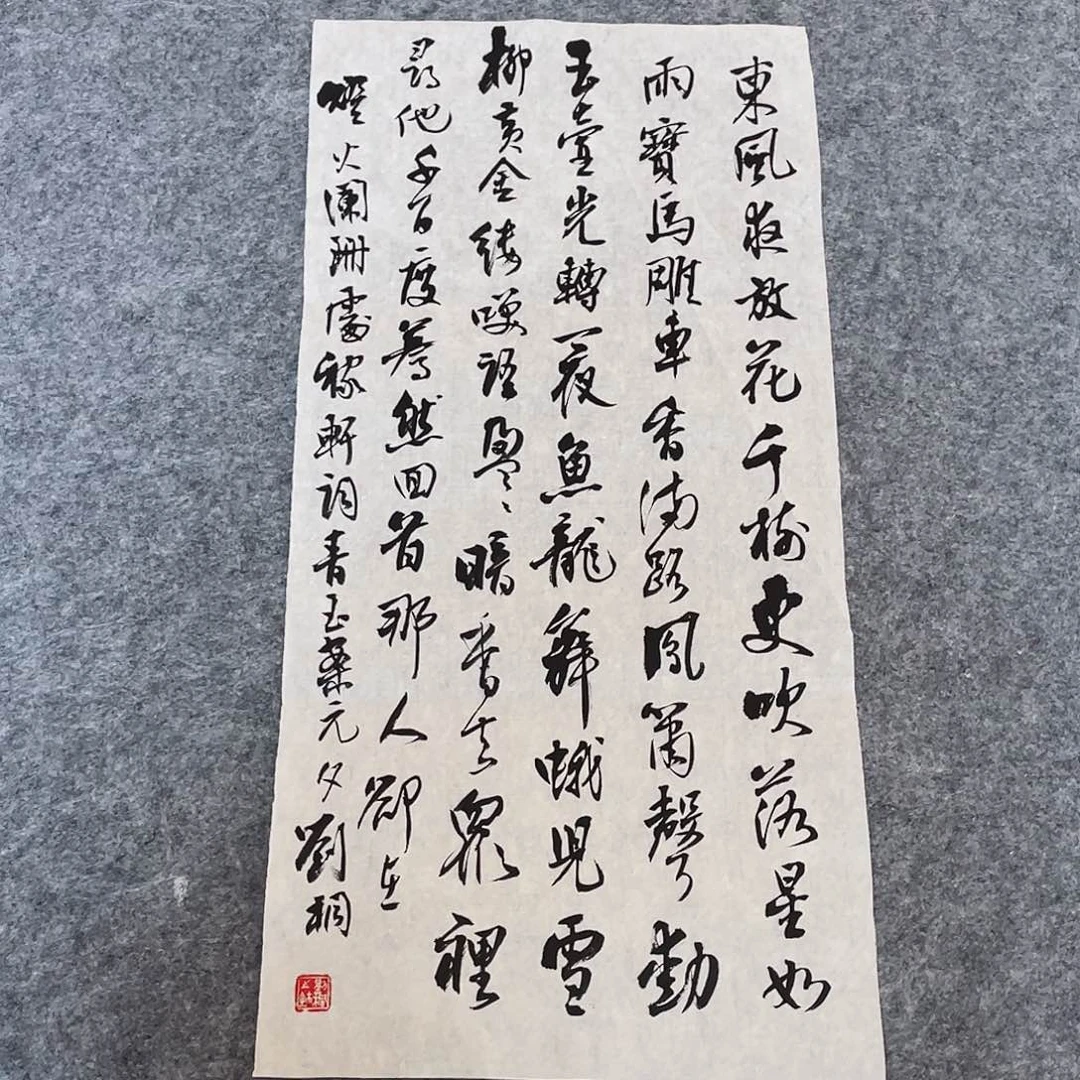 東風夜放花千樹更吹落星如
雨寶馬雕車香滿路鳳簫聲動
玉壺光轉一夜魚龍舞蛾兒雪
柳黃金縷笑語盈盈暗香去眾裡
尋他千百度驀然回首那人卻在
燈火闌珊處稼軒詞青玉案元夕劉桐